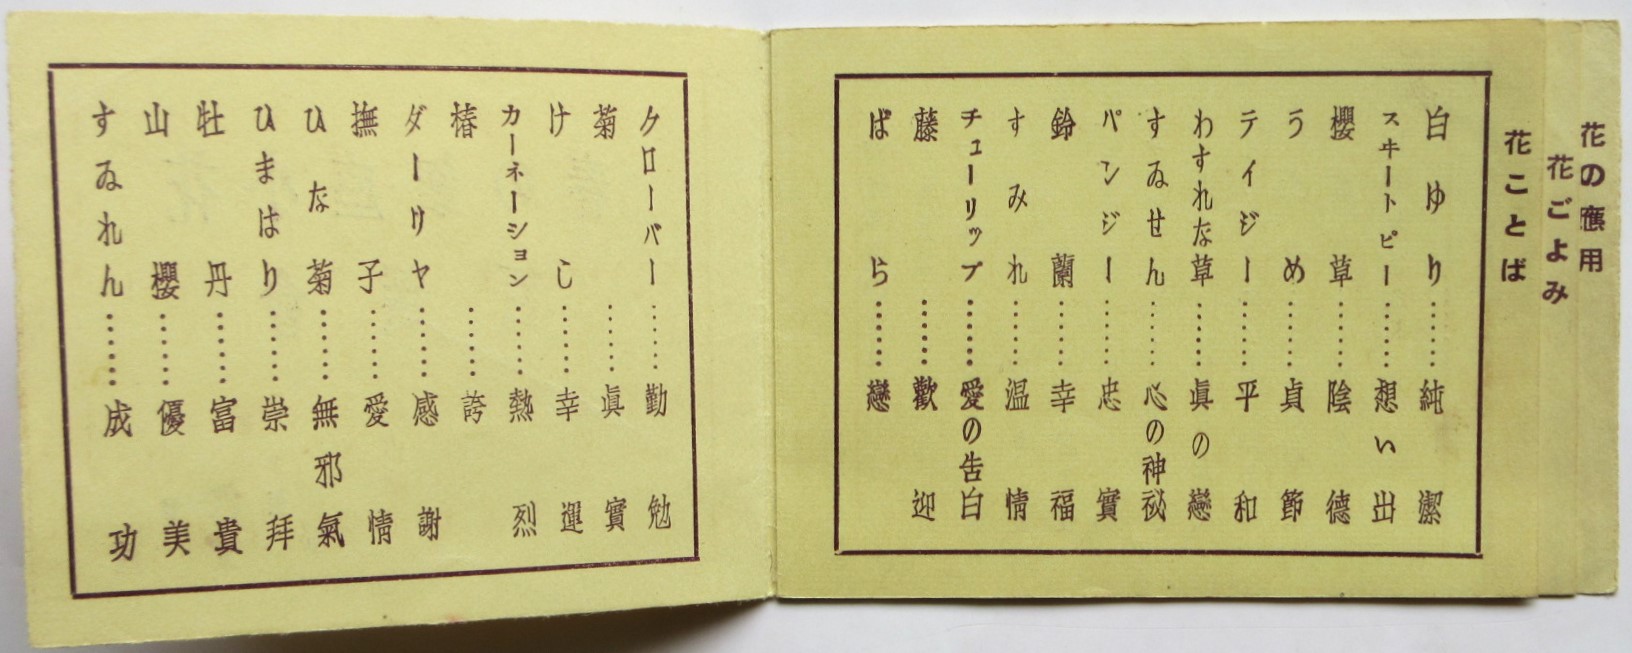 花の應用
花ごよみ
花ことば
白ゆり……純潔
スヰートピー……想い出
櫻草……陰德
うめ……貞節
テイジー……平和
わすれな草……眞の戀
すゐせん……心の神祕
パンジー……忠實
鈴蘭……幸福
すみれ……温情
チューリップ……愛の告白
藤……歡迎
ばら……戀
クローバー……勤勉
菊……眞實
けし……幸運
カーネーション……熱烈
椿……誇
ダーリヤ……感謝
撫子……愛情
ひな菊……無邪氣
ひまはり……崇拜
牡丹……富貴
山櫻……優美
すゐれん……成功